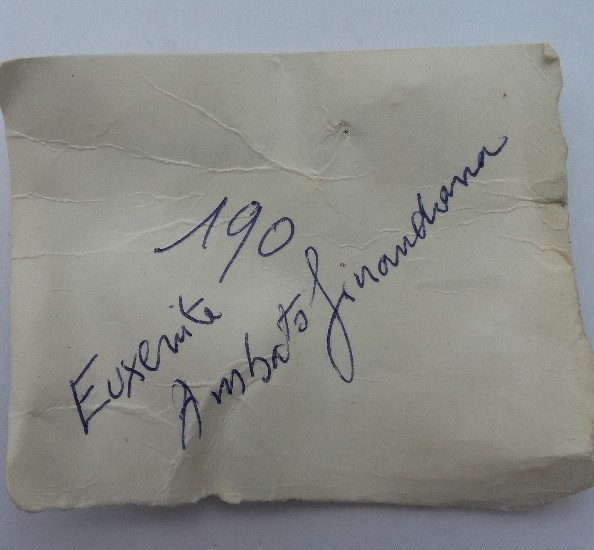 190
Euxenite
Ambatofinandrana